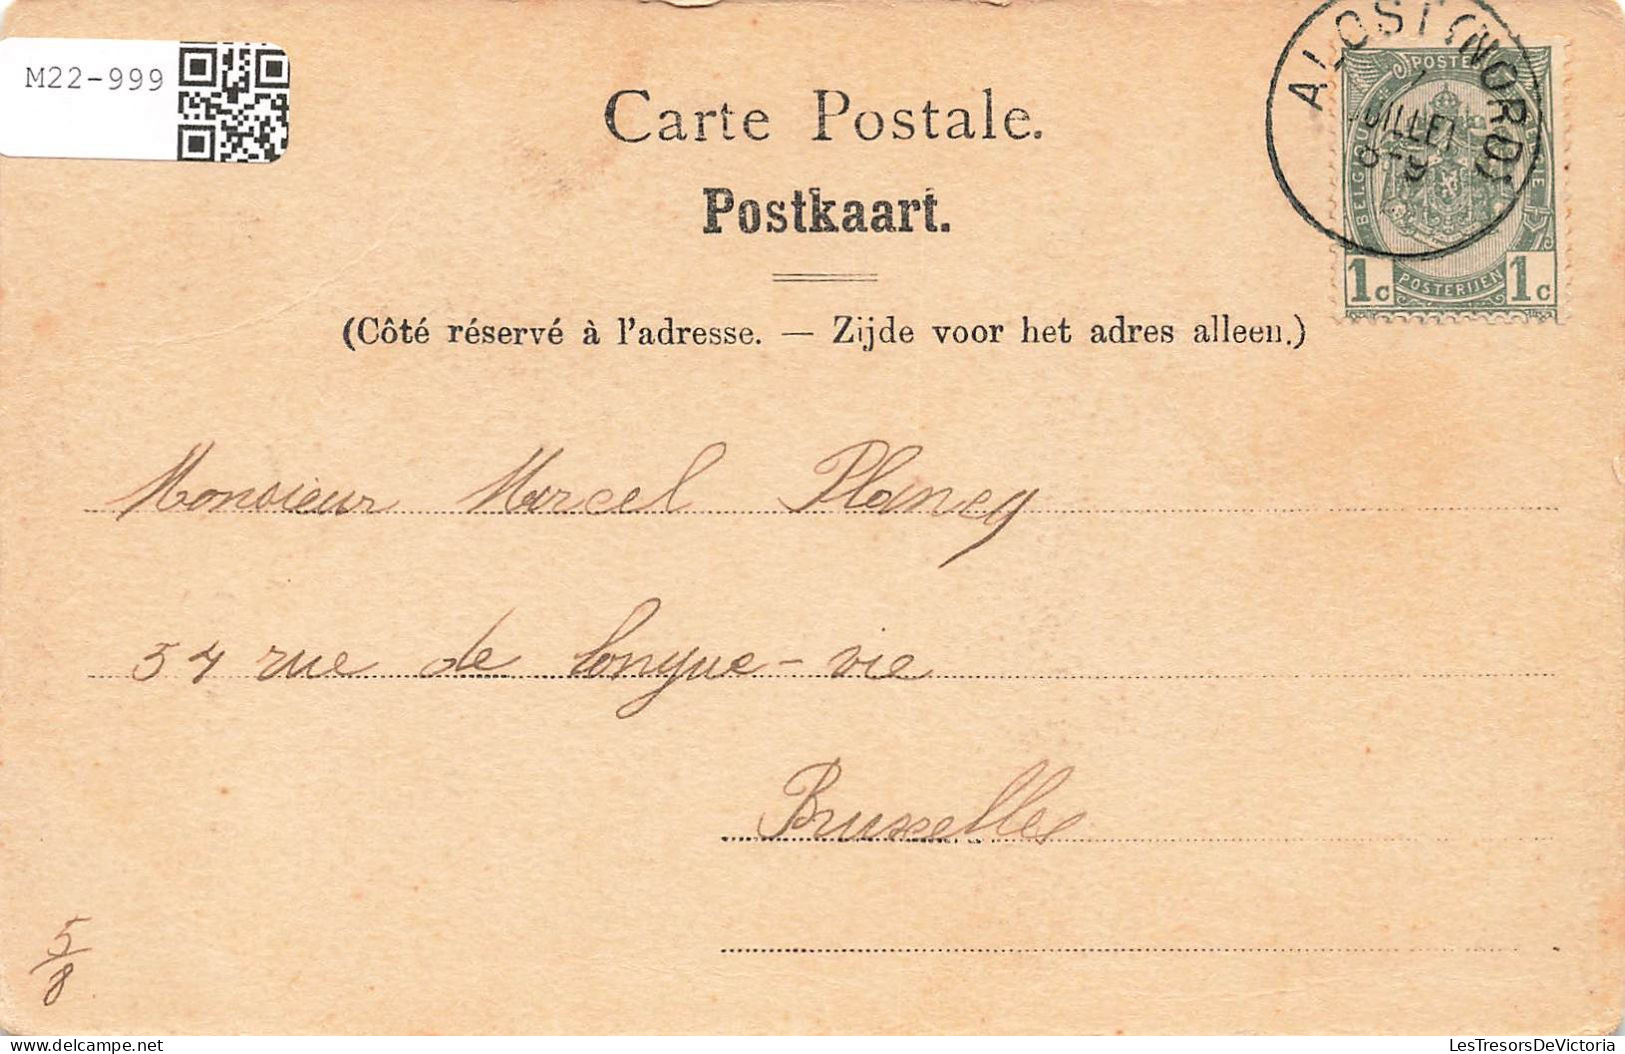 M22-999
ALOST (NORD)
JUILLET
Carte Postale.
Postkaart.
POSTES
BELGIQUE
BELGIE
POSTERIJEN
1c 1c
(Côté réservé à l'adresse. — Zijde voor het adres alleen.)
Monsieur Marcel Plancq
54 rue de longue-vie
Bruxelles
5/8
LesTresorsDeVictoria